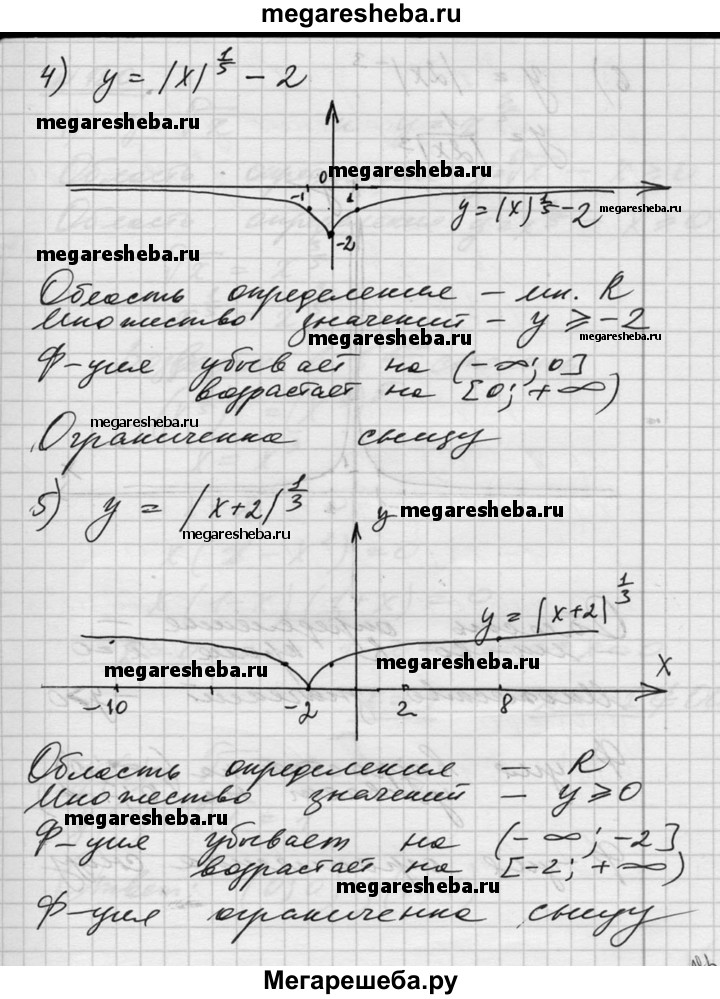 megaresheba.ru
4) y = |x|^{1/5} - 2
megaresheba.ru
megaresheba.ru
0
-1 1
y = |x|^{1/5} - 2
megaresheba.ru
-2
megaresheba.ru
Область определения - мн. R
Множество значений - y ≥ -2
megaresheba.ru
Ф-ция убывает на (-∞; 0]
возрастает на [0; +∞)
megaresheba.ru
Ограниченна снизу
5) y = |x+2|^{1/3}
megaresheba.ru
y
megaresheba.ru
y = |x+2|^{1/3}
megaresheba.ru
megaresheba.ru
x
-10 -2 2 8
Область определения - R
Множество значений - y ≥ 0
megaresheba.ru
Ф-ция убывает на (-∞; -2]
возрастает на [-2; +∞)
megaresheba.ru
Ф-ция ограниченна снизу
Мегарешеба.ру